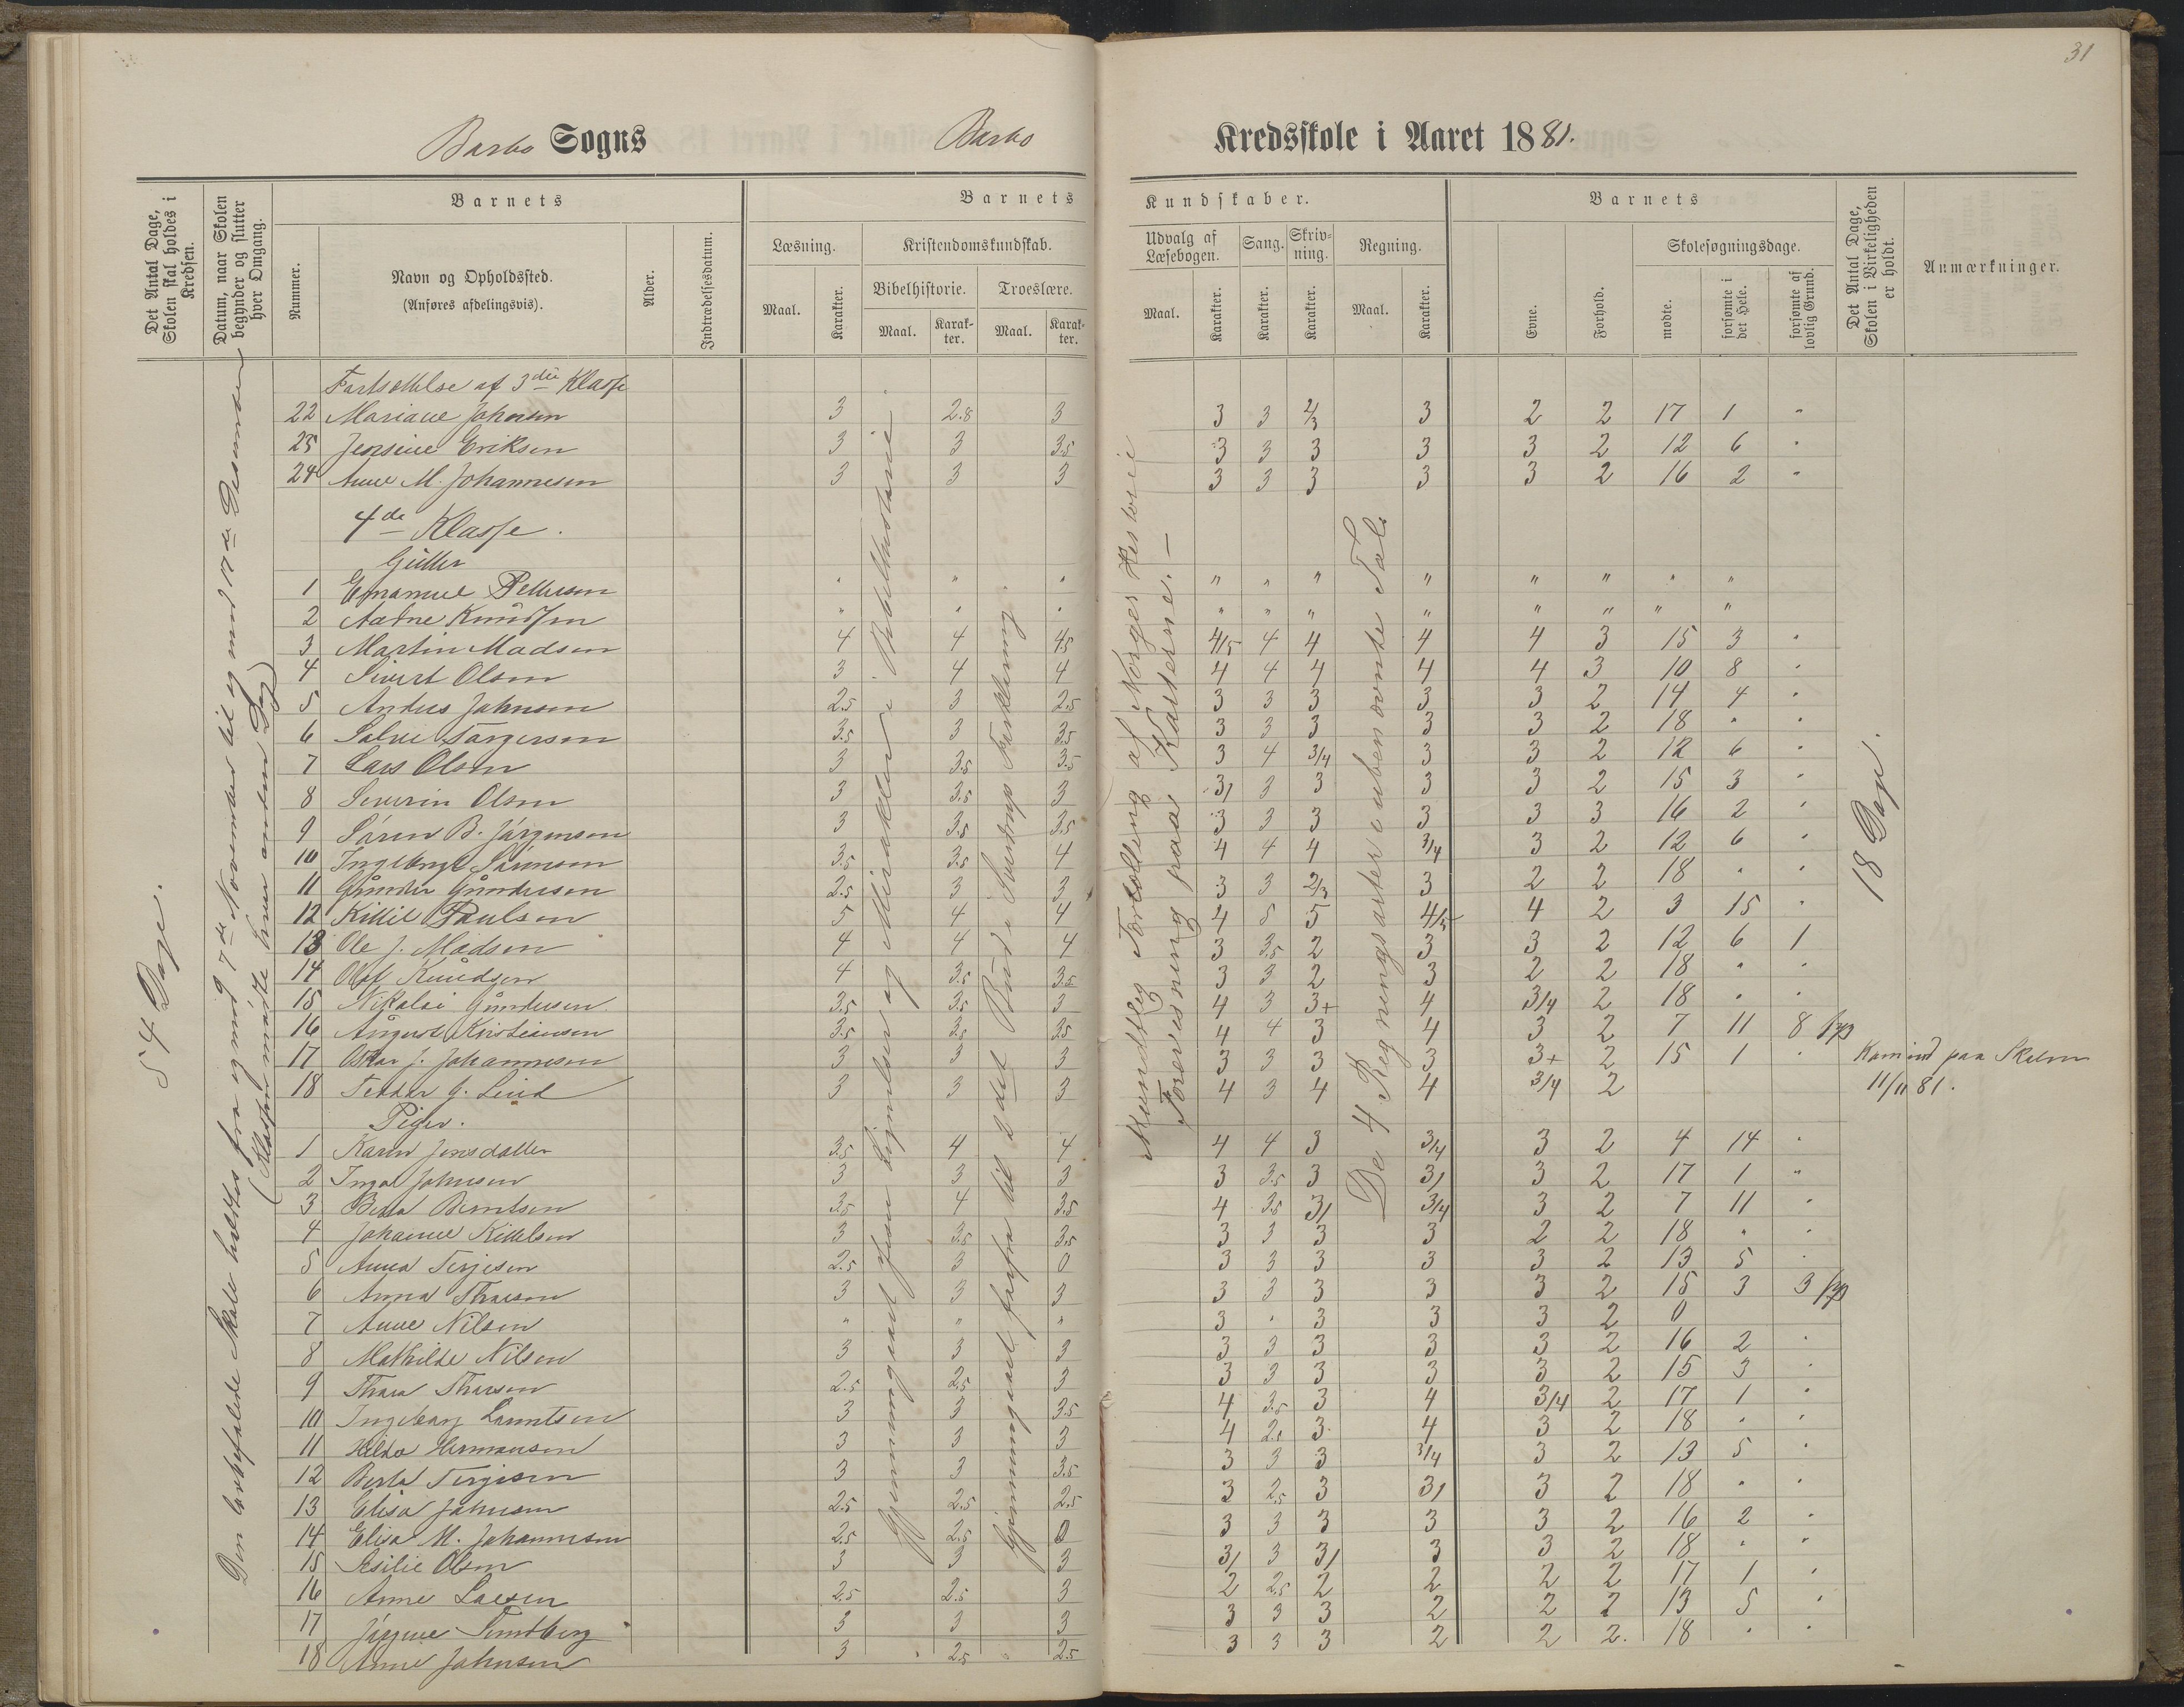 31
Barbo Sogns Barbo Kredsskole i Aaret 1881.
Det Antal Dage, Skolen skal holdes i Kredsen.
Datum, naar Skolen begynder og slutter hver Omgang.
Nummer.
Barnets
Navn og Opholdssted.
(Anføres afdelingsvis).
Alder.
Indtrædelsesdatum.
Barnets Kundskaber.
Læsning.
Maal.
Karakter.
Kristendomskundskab.
Bibelhistorie.
Maal.
Karakter.
Troeslære.
Maal.
Karakter.
Udvalg af Læsebogen.
Maal.
Karakter.
Sang.
Karakter.
Skrivning.
Karakter.
Regning.
Maal.
Karakter.
Barnets
Evne.
Forhold.
Skolesøgningsdage.
mødte.
forsømte i det Hele.
forsømte af lovlig Grund.
Det Antal Dage, Skolen i Virkeligheden er holdt.
Anmærkninger.
54 Dage.
Fortsættelse af 3die Klasse
22 Mariane Johnsen 3 2.8 3 3 3 2/3 3 2 2 17 1 "
23 Jensine Eriksen 3 3 3.5 3 3 3 3 3 2 12 6 "
24 Anne M. Johannesen 3 3 3 3 3 3 3 3 2 16 2 "
4de Klasse.
Gutter
1 Emanuel Pettersen " " " " " " " " " " "
2 Aadne Knudsen " " " " " " " " " " "
3 Martin Madsen 4 4 4.5 4/5 4 4 4 4 3 15 3 "
4 Sivert Olsen 3 4 4 4 4 4 4 4 3 10 8 "
5 Anders Johnsen 2.5 3 2.5 3 3 3 3 3 2 14 4 "
6 Salve Torgersen 3.5 3 3.5 3 3 3 3 3 2 18 " "
7 Lars Olsen 3 3.5 3.5 3 4 3/4 3 3 2 12 6 "
8 Severin Olsen 3 3.5 3 3/ 3 3 3 3 2 15 3 "
9 Søren B. Jørgensen 3 3.5 3.5 3 3 3 3 3 3 16 2 "
10 3.5 3.5 4 4 4 4 3/4 3 2 12 6 "
11 Gunder Gundersen 2.5 3 3 3 3 2/3 3 2 2 18 " "
12 Kittil Paulsen 5 4 4 4 5 5 4/5 4 2 3 15 "
13 Ole J. Madsen 4 4 4 3 3.5 2 3 3 2 12 6 1
14 Olaf Knudsen 4 3.5 3.5 3 3 2 3 2 2 18 " "
15 Nikolai Gundersen 3.5 3.5 3 4 3 3+ 4 3/4 2 18 " "
16 August Kristiansen 3.5 3.5 3.5 4 4 3 4 3 2 7 11 8
17 Oskar J. Johannesen 3 3 3 3 3 3 3 3+ 2 15 1 " Kom ind paa Skolen
18 Teodor G. Lind 3 3 3 4 3 4 4 3/4 2 11/11 81.
Piger.
1 Karen Jensdatter 3.5 4 4 4 4 3 3/4 3 2 4 14 "
2 Inga Johnsen 3 3 3 3 3.5 3 3/ 3 2 17 1 "
3 Berta Berntsen 3.5 4 3.5 4 3.5 3/ 3/4 3 2 7 11 "
4 Johanne Kittelsen 3 3.5 3.5 3 3 3 3 2 2 18 " "
5 Anna Terjesen 2.5 3 0 3 3 3 3 3 2 13 5 "
6 Anna Thorsen 3 3 3 3 3 3 3 3 2 15 3 3
7 Anne Nilsen " " " 3 " 3 3 3 2 0
8 Mathilde Nilsen 3 3 3 3 3 3 3 3 2 16 2 "
9 Thora Thorsen 2.5 2.5 3 3 3 3 3 3 2 15 3 "
10 Ingeborg Larntsen 3 3 3.5 4 3.5 3 4 3/4 2 17 1 "
11 Hilda Hermansen 3 3 3 4 2.5 3 4 3 2 18 " "
12 Berta Terjesen 3 3 3.5 3 3 3 3/4 3 2 13 5 "
13 Elisa Johnsen 2.5 2.5 2.5 3 2.5 3 3/ 3 2 18 " "
14 Elisa M. Johannesen 2.5 2.5 0 3 3 3 3 3 2 16 2 "
15 Sesilie Olsen 3 3 3 3/ 3 3/ 3 3 2 18 " "
16 Anne Larsen 2.5 2.5 3 2 2.5 2 2 2 2 17 1 "
17 3 3 3 3 3 3 2 2 2 13 5 "
18 Anne Johnsen 3 2.5 2.5 3 3 3 2 2 2. 18 " "
Den lovbefalede Skole holdtes fra og med 7de November til og med 17de Desember
(Klassen mødte hver anden Dag)
Gjennemgaaet Jesu Lignelser og Mirakler i Bibelhistorie.
Gjennemgaaet forfra til 2det Bud i Sverdrups Forklaring.
Mundtlig Fortælling af Norges Historie
Forevisning paa Karterne. —
De 4 Regningsarter i ubenævnte Tal.
18 Dage.